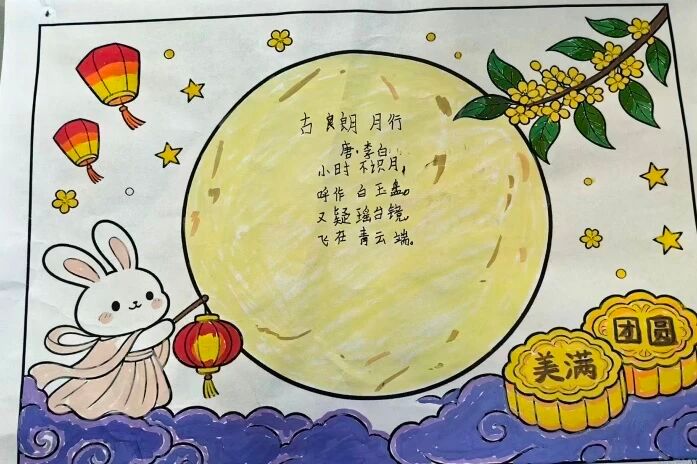 古良朗 月行
唐·李白
小时不识月,
呼作白玉盘。
又疑瑶台镜,
飞在青云端。
团圆
美满